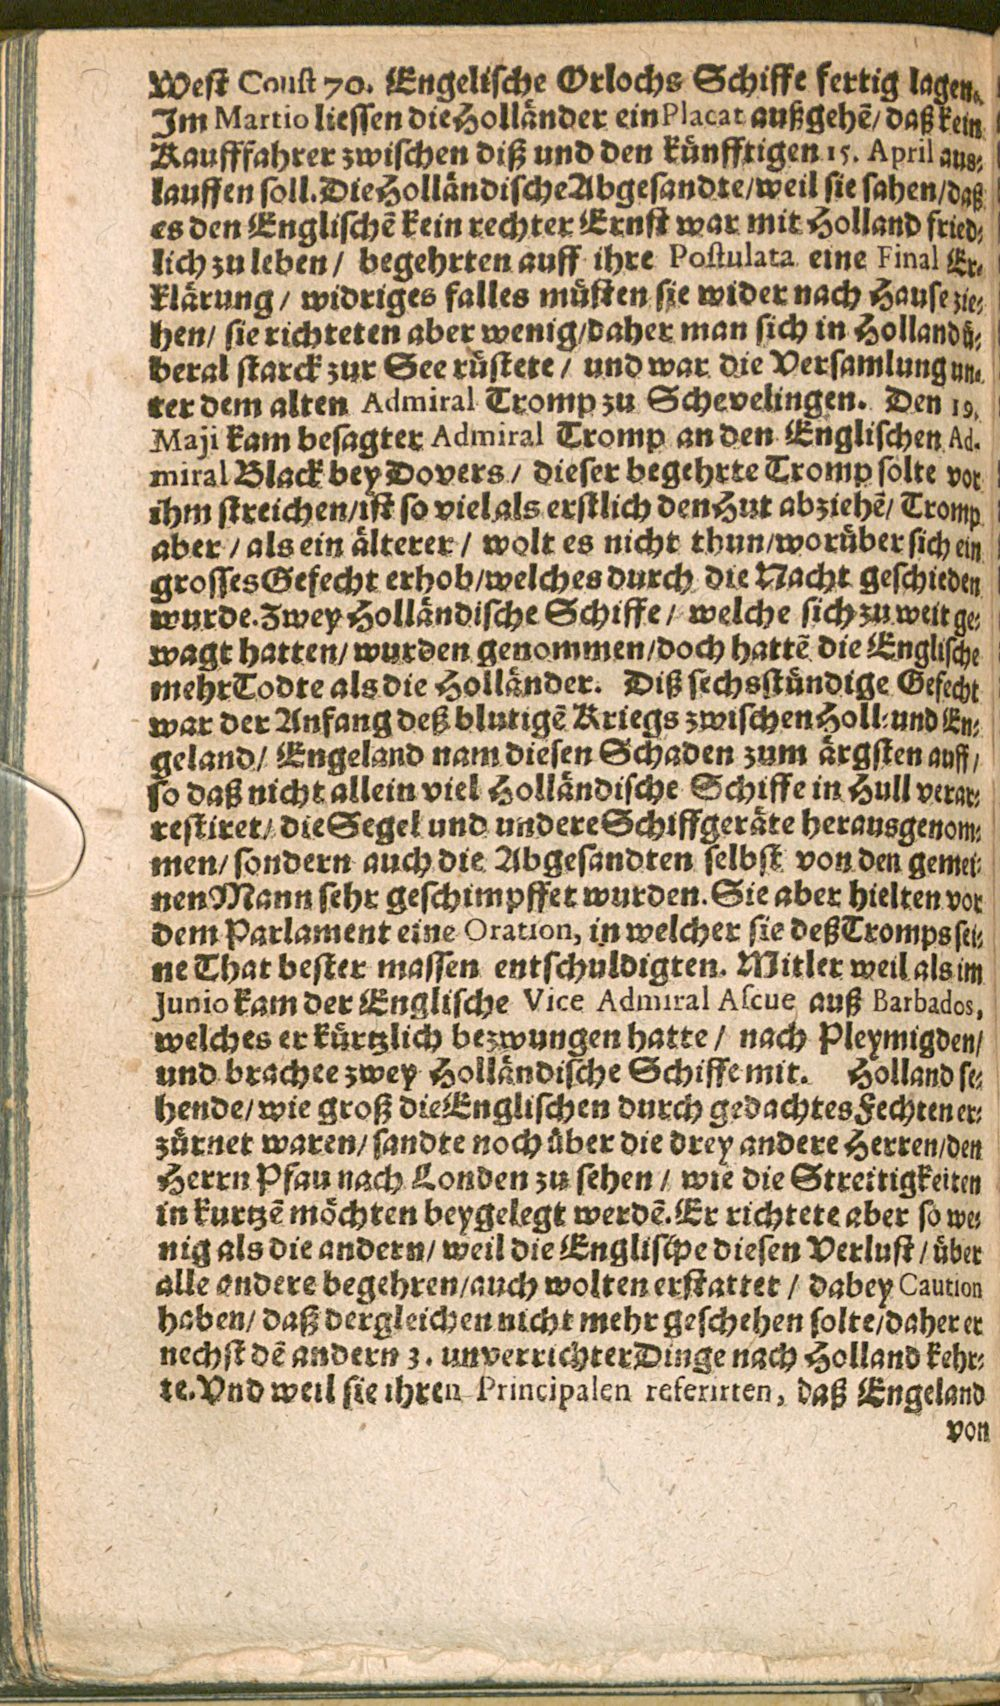 West Coust 70. Engelische Orlochs Schiffe fertig lagen.
Im Martio liessen die Holländer ein Placat außgehẽ/ daß kein
Kaufffahrer zwischen diß und den künfftigen 15. April aus-
lauffen soll. Die Holländische Abgesandte/ weil sie sahen/ daß
es den Englischẽ kein rechter Ernst war mit Holland fried-
lich zu leben/ begehrten auff ihre Postulata eine Final Er-
klärung/ widriges falles müsten sie wider nach Hause zie-
hen/ sie richteten aber wenig/ daher man sich in Holland ü-
beral starck zur See rüstete/ und war die Versamlung un-
ter dem alten Admiral Tromp zu Schevelingen. Den 19.
Maji kam besagter Admiral Tromp an den Englischen Ad-
miral Black bey Dovers/ dieser begehrte Tromp solte vor
ihm streichen/ ist so viel als erstlich den Hut abziehẽ/ Tromp
aber/ als ein älterer/ wolt es nicht thun/ worüber sich ein
grosses Gefecht erhob/ welches durch die Nacht geschieden
wurde. Zwey Holländische Schiffe/ welche sich zu weit ge-
wagt hatten/ wurden genommen/ doch hattẽ die Englische
mehr Todte als die Holländer. Diß sechsstündige Gefecht
war der Anfang deß blutigẽ Kriegs zwischen Holl- und En-
geland/ Engeland nam diesen Schaden zum ärgsten auff/
so daß nicht allein viel Holländische Schiffe in Hull verar-
restiret/ die Segel und undere Schiffgeräte herausgenom-
men/ sondern auch die Abgesandten selbst von den gemei-
nen Mann sehr geschimpffet wurden. Sie aber hielten vor
dem Parlament eine Oration, in welcher sie deß Tromps sei-
ne That bester massen entschuldigten. Mitler weil als im
Junio kam der Englische Vice Admiral Ascue auß Barbados,
welches er kürtzlich bezwungen hatte/ nach Pleymigden/
und brachee zwey Holländische Schiffe mit. Holland se-
hende/ wie groß die Englischen durch gedachtes Fechten er-
zürnet waren/ sandte noch über die drey andere Herren/ den
Herrn Pfau nach Londen zu sehen/ wie die Streitigkeiten
in kurtzẽ möchten beygelegt werdẽ. Er richtete aber so we-
nig als die andern/ weil die Engliscpe diesen Verlust/ über
alle andere begehren/ auch wolten erstattet/ dabey Caution
haben/ daß dergleichen nicht mehr geschehen solte/ daher er
nechst dẽ andern 3. unverrichter Dinge nach Holland kehr-
te. Vnd weil sie ihren Principalen referirten, daß Engeland
von